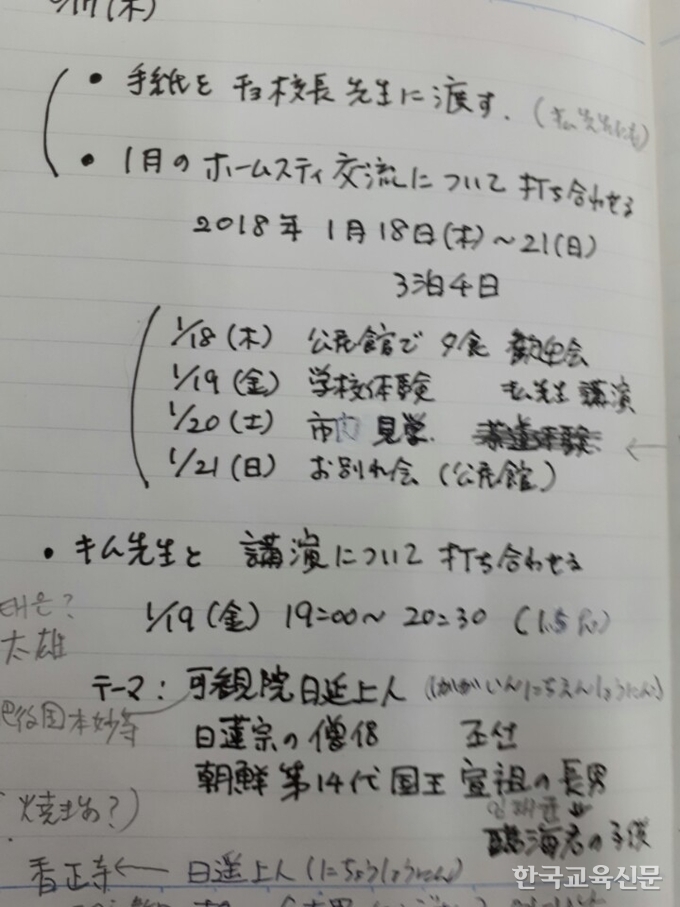 /17(木)
• 手紙を チョ校長先生に渡す. (キム先生にも)
• 1月のホームスティ交流について打ち合わせる
2018年 1月18日(木)~21(日)
3泊4日
1/18(木) 公民館で 夕食 歓迎会
1/19(金) 学校体験 キム先生 講演
1/20(土) 市内 見学.
1/21(日) お別れ会(公民館)
• キム先生と 講演について 打ち合わせる
1/19(金) 19:00~20:30
태은?
太雄
テーマ: 可観院日延上人 (かがいんにちえんしょうにん)
肥後国本妙寺
日蓮宗の僧侶
朝鮮第14代国王 宣祖の長男
임해군
臨海君の子供
香正寺← 日遙上人(にちょうしょうにん)
한국교육신문